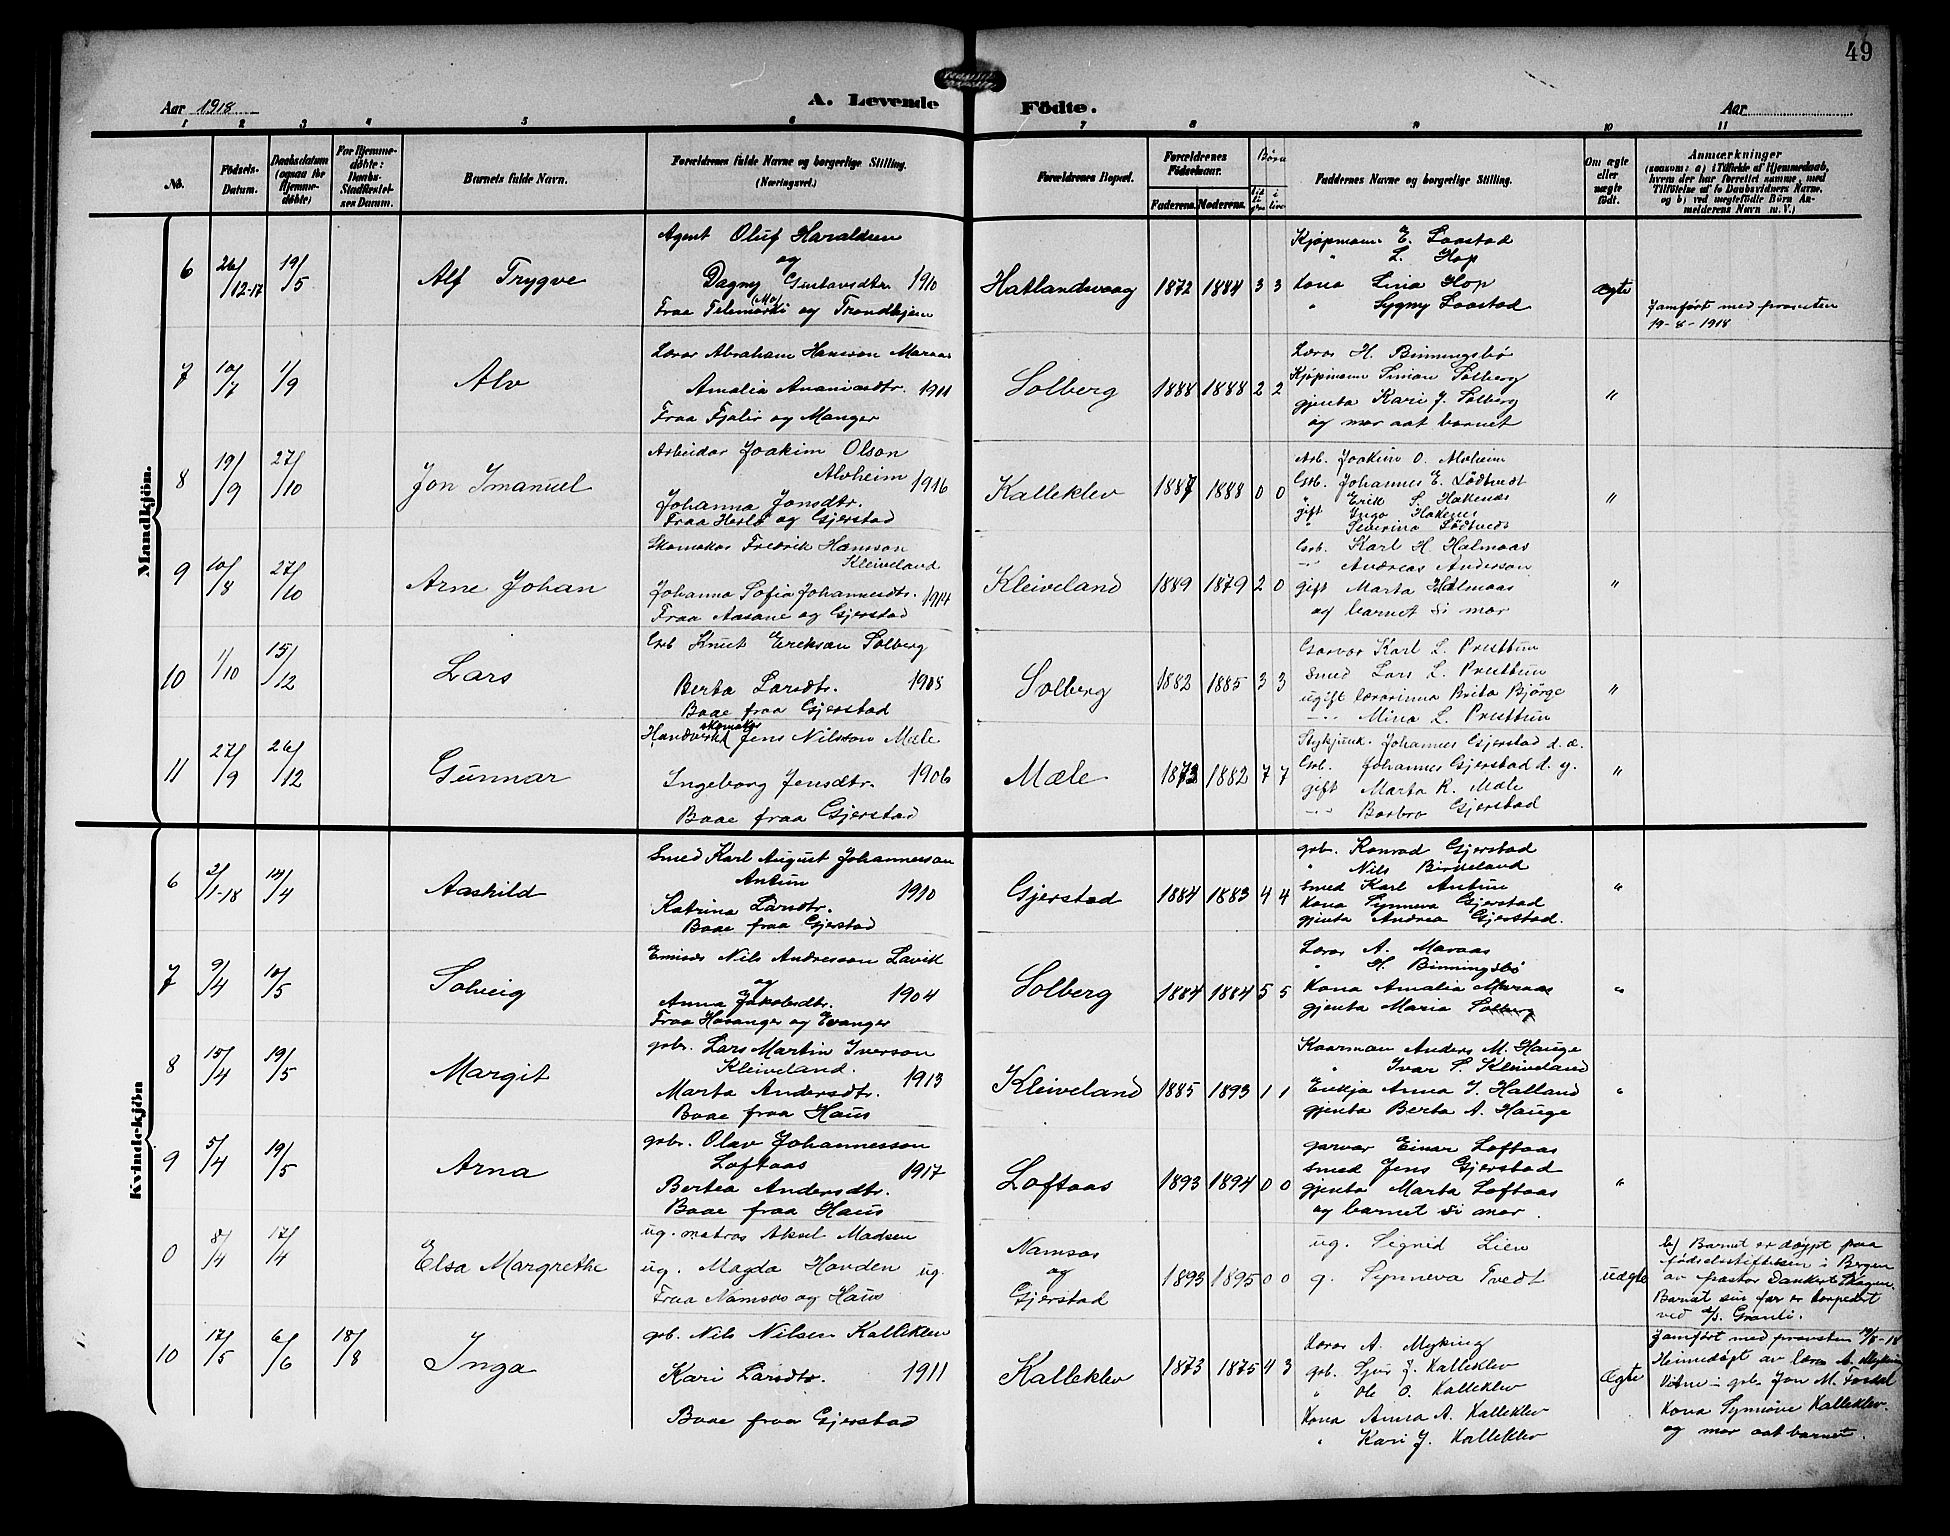 49
Aar 1918
A. Levende
Födte.
Aar
1 2 3 4 5 6 7 8 9 10 11
No.
Födsels-Datum.
Daabsdatum (ogsaa for Hjemme-døbte)
For Hjemme-døbte: Daabs-Stadfæstelses Datum.
Barnets fulde Navn.
Forældrenes fulde Navne og borgerlige Stilling.
(Næringsvei.)
Forældrenes Bopæl.
Forældrenes Födselsaar.
Faderens. Moderens.
Börn
i live
Faddernes Navne og borgerlige Stilling.
Om ægte eller uægte födt.
Anmærkninger
(saasom: a) i Tilfælde af Hjemmedaab, hvem der har forrettet samme, med Tilföielse af to Daabsvidners Navne, og b) ved uægtefödte Börn Anmelderens Navn m. V.)
Mandkjön.
6 26/12-17 19/5 Alf Trygve
Agent Oluf Haraldsen
og
Dagny Gustavsdtr. 1910
Fraa Telemarki (Mo) og Trondhjem
Hatlandsvaag 1872 1884 3 3
Kjøpmann E. Saastad
" L. Hop
kona Lina Hop
" Sygny Saastad
ægte
Jamført med prosten
19-8-1918
7 10/7 1/9 Alv
Lærar Abraham Hansson Maraas
Amalia Ananiasdtr. 1911
Fraa Fjaler og Manger
Solberg 1888 1888 2 2
Lærar H. Binningsbø
Kjøpmann Simon Solberg
gjenta Kari J. Solberg
og mor aat barnet
"
8 19/9 27/10 Jon Imanuel
Arbeidar Joakim Olson
Alvheim 1916
Johanna Jonsdtr.
Fraa Herlø og Gjerstad
Kalleklev 1887 1888 0 0
Arb. Joakim O. Alvheim
Grb. Johannes E. Lødtvedt
" Erik S. Hakenes
gift Inga Hakenes
" Severina Lødtvedt
"
9 10/8 27/10 Arne Johan
Skomakar Fredrik Hansson
Kleiveland
Johanna Sofia Johannesdtr. 1914
Fraa Aasane og Gjerstad
Kleiveland 1889 1879 2 0
Grb. Karl H. Halmaas
-"- Andreas Anderson
gift Marta Halmaas
og barnet si mor
"
10 1/10 15/12 Lars
Grb Knut Erikson Solberg
Berta Larsdtr. 1908
Baae fraa Gjerstad
Solberg 1882 1885 3 3
Garvar Karl L. Presttun
Smed Lars L. Presttun
ugift lærarinna Brita Bjørge
-"- Mina L. Presttun
"
11 27/9 26/12 Gunnar
Skomakar
Handverkar Jens Nilsson Mæle
Ingeborg Jensdtr. 1906
Baae fraa Gjerstad
Mæle 1873 1882 7 7
Johannes Gjerstad d. æ.
Grb. Johannes Gjerstad d. y.
gift Marta K. Mæle
-"- Barbro Gjerstad
"
Kvindekjön
6 2/1-18 14/4 Aashild
Smed Karl August Johannesson
Antun
Katrina Larsdtr. 1910
Baae fraa Gjerstad
Gjerstad 1884 1883 4 4
grb. Konrad Gjerstad
" Nils Birkeland
Smed Karl Antun
kona Synneva Gjerstad
gjenta Andrea Gjerstad.
"
7 9/4 10/5 Solveig
Emisær Nils Andresson Lavik
og
Anna Jakobsdtr. 1904
Fraa Hosanger og Evanger
Solberg 1884 1884 5 5
Lærar A. Maraas
" H. Binningsbø
kona Amalia Maraas
gjenta Maria Solberg
"
8 15/4 19/5 Margit
grb. Lars Martin Iverson
Kleiveland. 1913
Marta Andersdtr.
Baae fraa Haus
Kleiveland 1885 1893 1 1
Kaarman Anders M. Hauge
" Ivar S. Kleiveland
Enkja Anna I. Hatland
gjenta Berta A. Hauge
"
9 5/4 19/5 Arna
grb. Olav Johannesson
Loftaas 1917
Bertea Andersdtr.
Baae fraa Haus
Loftaas 1893 1894 0 0
garvar Einar Loftaas
smed Jens Gjerstad
gjenta Marta Loftaas
og barnet si mor.
"
0 8/4 17/4 Elsa Margrethe
ug. matros Aksel Madsen
ug. Magda Hovden ug.
Fraa Namsos og Haus
Namsos
og
Gjerstad
1893 1895 0 0
ug. Sigrid Lien
g. Synneva Tvedt
uægte
b) Barnet er døypt paa
fødselsstiftelsen i Bergen
av pastor Dankert Skagen.
Barnet sin far er torpedert
ved
10 17/5 6/6 18/8 Inga
grb. Nils Nilsen Kalleklev
Kari Larsdtr. 1911
Baae fraa Gjerstad
Kalleklev 1873 1875 4 3
Lærar A. Myking
grb. Sjur J. Kalleklev
" Ole O. Kalleklev
Kona Anna A. Kalleklev
" Kari J. Kalleklev
Ægte
Jamført med prosten 19/8-18
Heimedøpt av lærar A. Myking
Vitne: grb. Jon M.
Kona Synnøve Kalleklev.
og mor aat barnet.